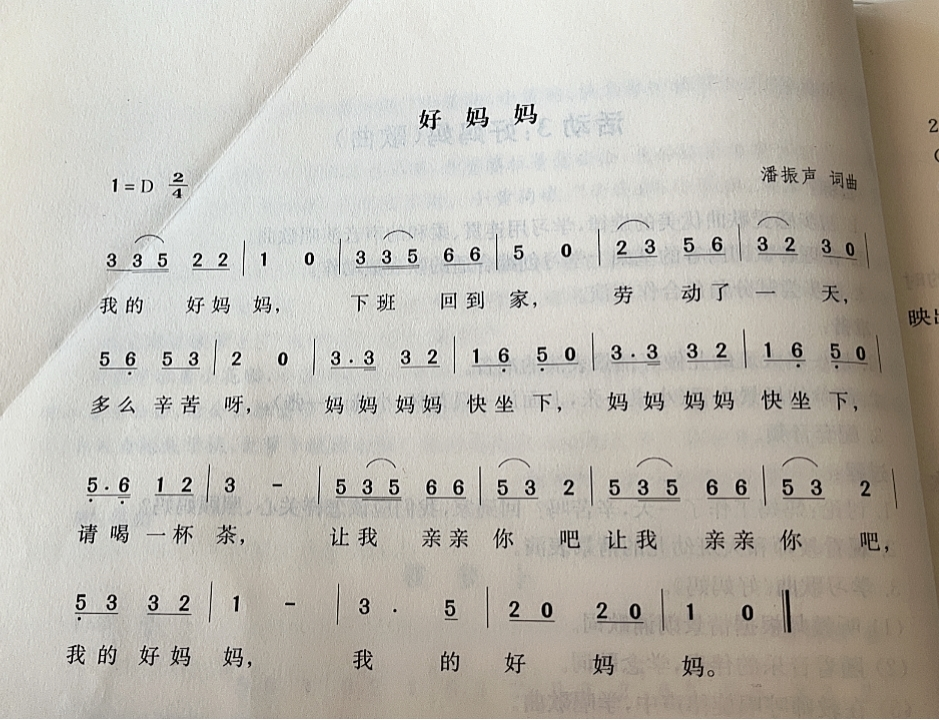 好 妈 妈
1=D 2/4
潘振声 词曲
3 3 5 2 2 | 1 0 | 3 3 5 6 6 | 5 0 | 2 3 5 6 | 3 2 3 0 |
我的 好妈 妈, 下班 回到 家, 劳 动了 一 天,
5 6 5 3 | 2 0 | 3·3 3 2 | 1 6 5 0 | 3·3 3 2 | 1 6 5 0 |
多么 辛苦 呀, 妈妈妈妈 快坐 下, 妈妈妈妈 快坐 下,
5·6 1 2 | 3 - | 5 3 5 6 6 | 5 3 2 | 5 3 5 6 6 | 5 3 2 |
请喝 一杯 茶, 让我 亲亲 你 吧 让我 亲亲 你 吧,
5 3 3 2 | 1 - | 3 · 5 | 2 0 2 0 | 1 0 ‖
我的 好妈 妈, 我 的 好 妈 妈。
2
映